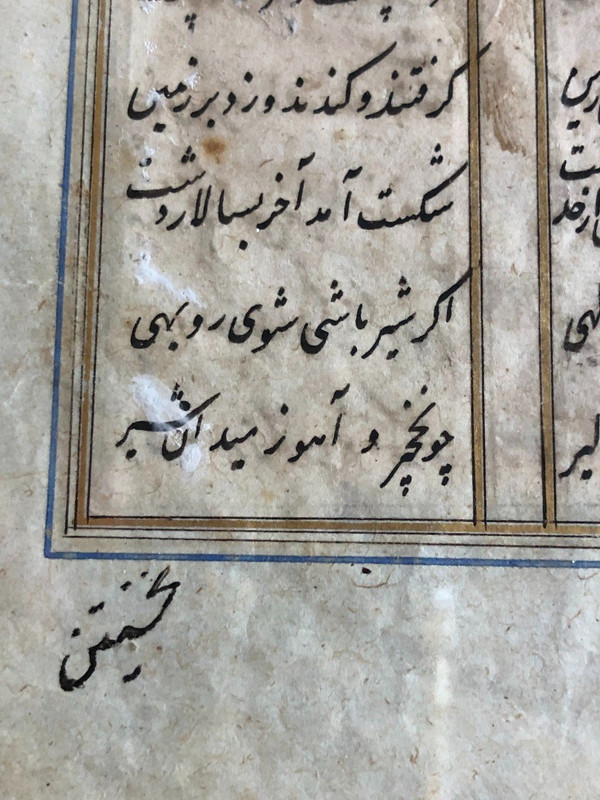 گرفتند و کندند و زد بر زمین
شکست آمد آخر بسالار دشت
اگر شیر باشی شوی روبهی
چو نخچیر و آهو ز میدان شیر
نخستین